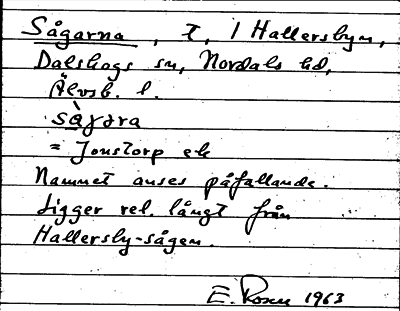 Sågarna, t, 1 Hallersbyn,
Dalskogs sn, Nordals hd,
Älvsb. l.
sàgɔra
= Jonstorp ek
Namnet anses påfallande.
Ligger rel. långt från
Hallersby-sågen.
E. Rosen 1963